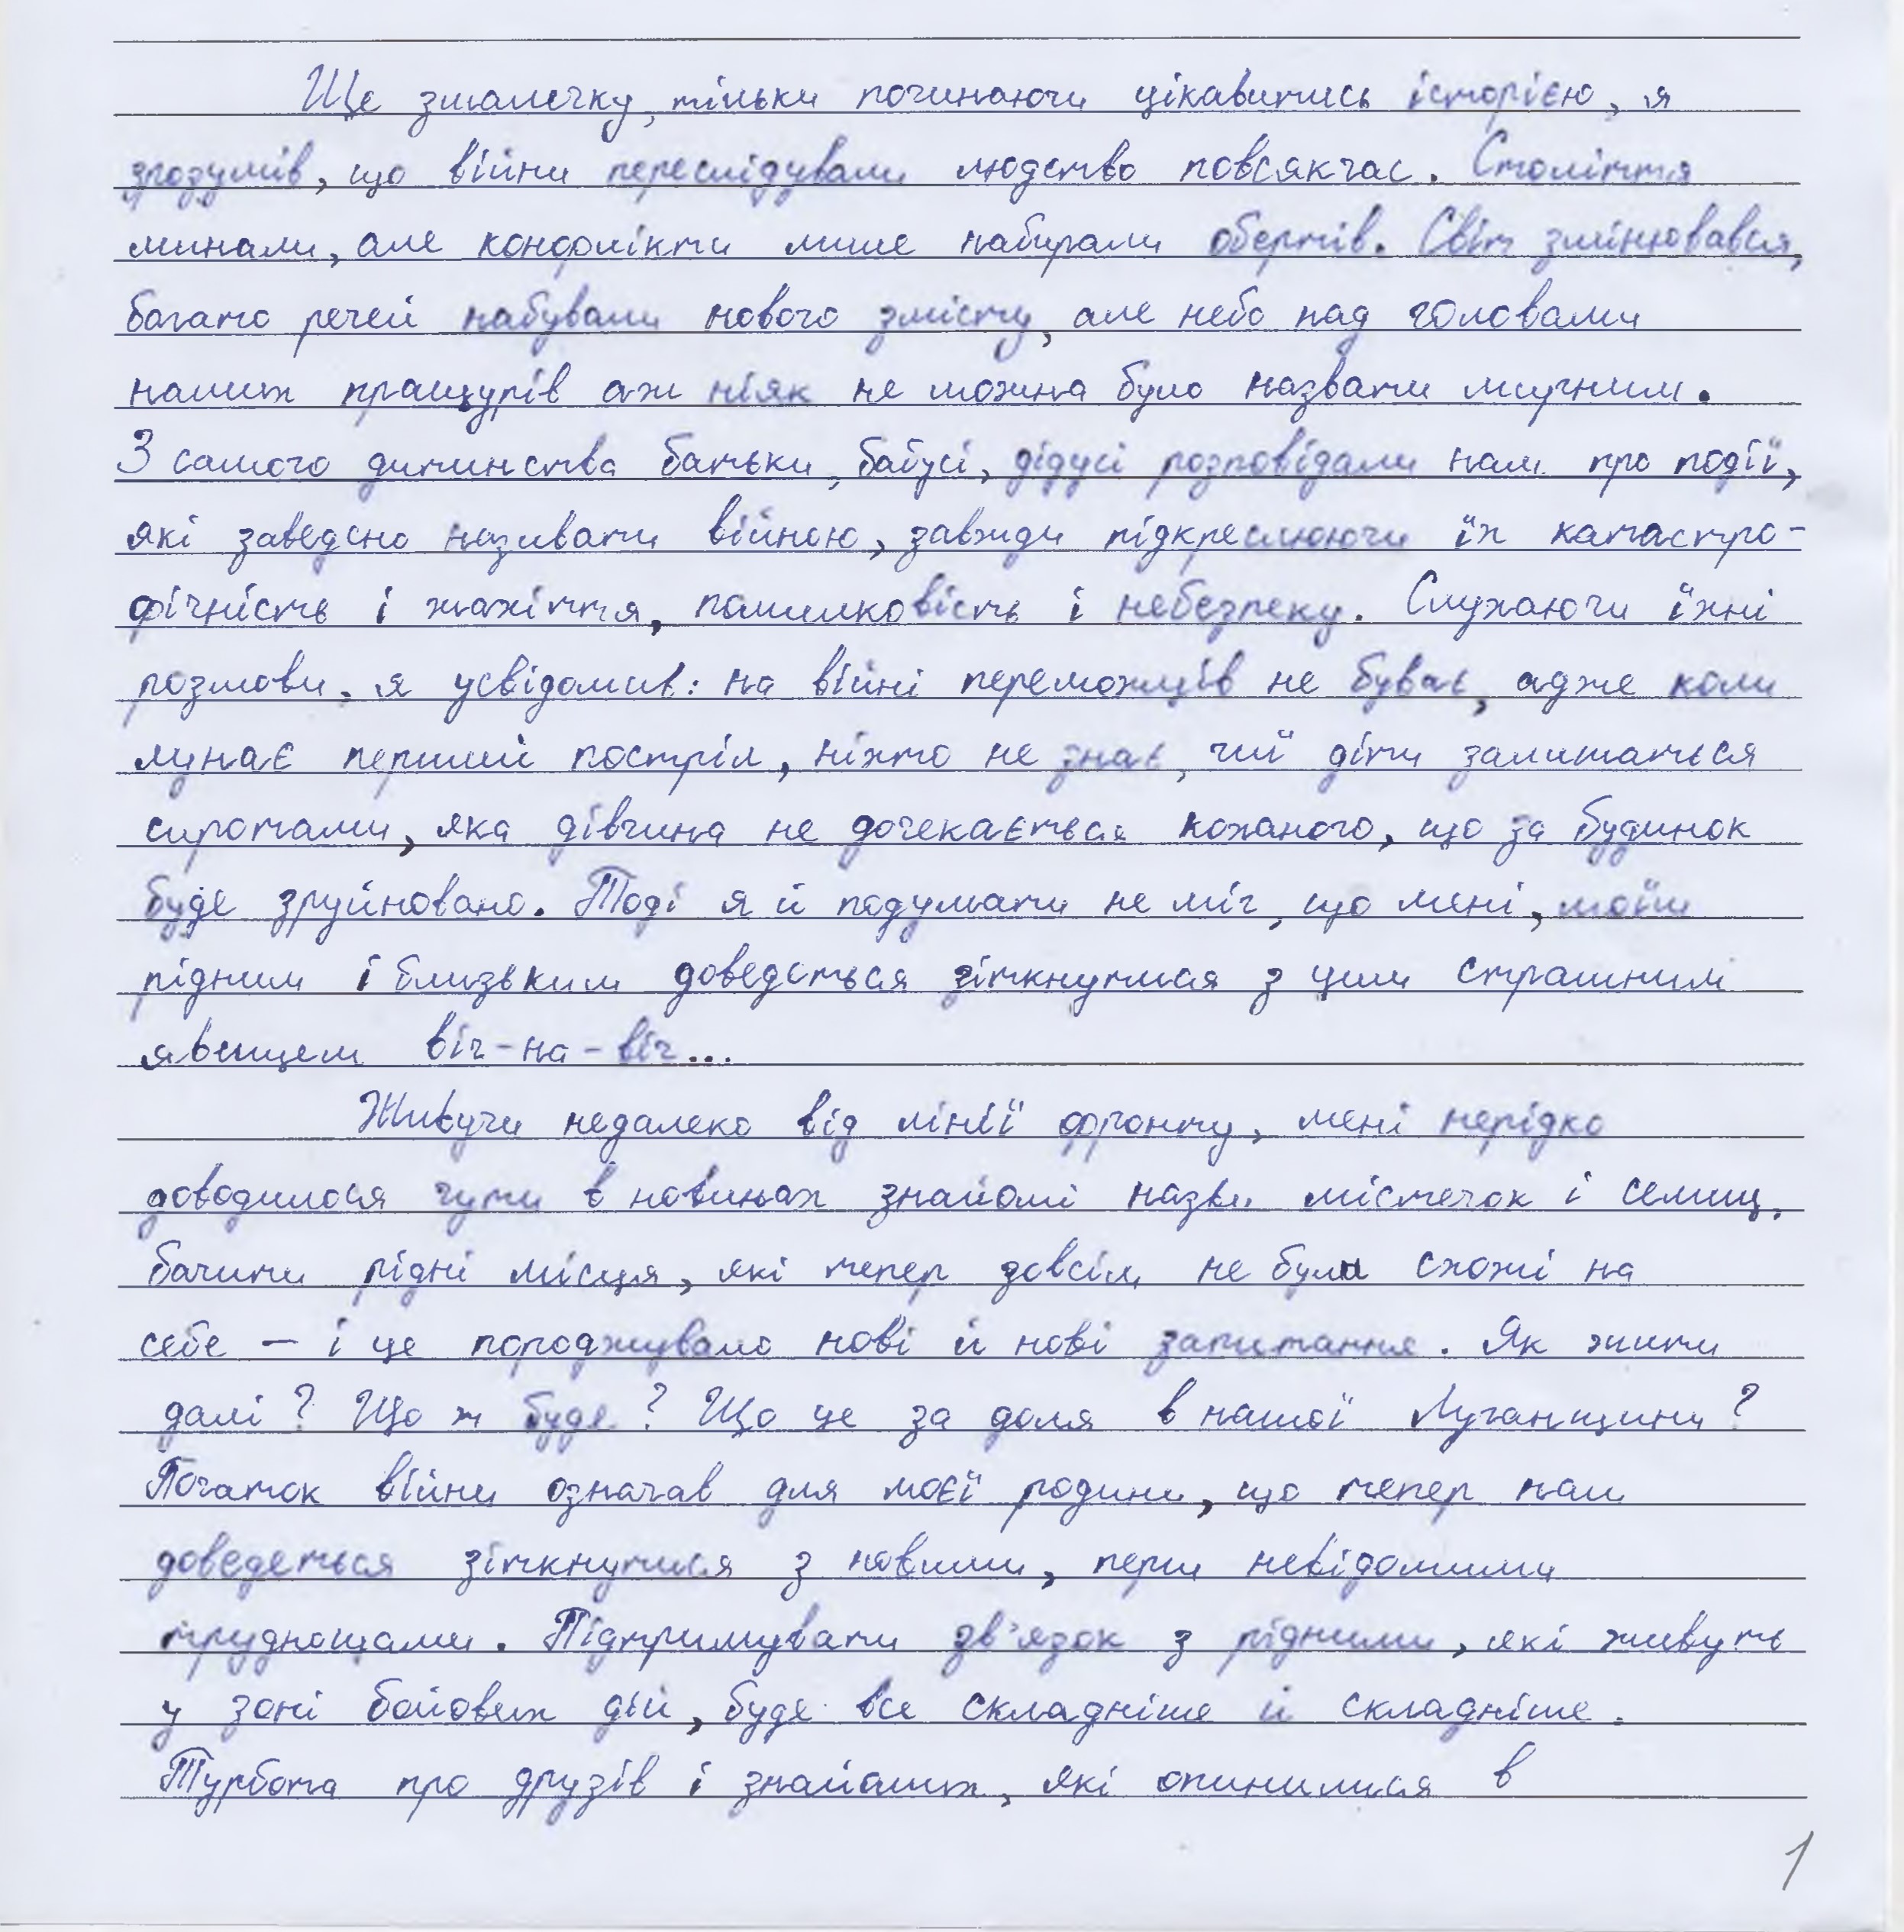 Ще змалечку, тільки починаючи цікавитись історією, я
зрозумів, що війни переслідували людство повсякчас. Століття
минали, але конфлікти лише набирали обертів. Світ змінювався,
багато речей набували нового змісту, але небо над головами
наших пращурів аж ніяк не можна було назвати мирним.
З самого дитинства батьки, бабусі, дідусі розповідали нам про події,
які заведено називати війною, завжди підкреслюючи їх катастро-
фічність і жахіття, помилковість і небезпеку. Слухаючи їхні
розмови, я усвідомив: на війні переможців не буває, адже коли
лунає перший постріл, ніхто не знає, чиї діти залишаться
сиротами, яка дівчина не дочекається коханого, що за будинок
буде зруйновано. Тоді я й подумати не міг, що мені, моїм
рідним і близьким доведеться зіткнутися з цим страшним
явищем віч-на-віч...
Живучи недалеко від лінії фронту, мені нерідко
доводилося чути в новинах знайомі назви містечок і селищ,
бачити рідні місця, які тепер зовсім не були схожі на
себе — і це породжувало нові й нові запитання. Як жити
далі? Що ж буде? Що це за доля в нашої Луганщини?
Початок війни означав для моєї родини, що тепер нам
доведеться зіткнутися з новими, перш невідомими
труднощами. Підтримувати зв'язок з рідними, які живуть
у зоні бойових дій, буде все складніше й складніше.
Турбота про друзів і знайомих, які опинилися в
1